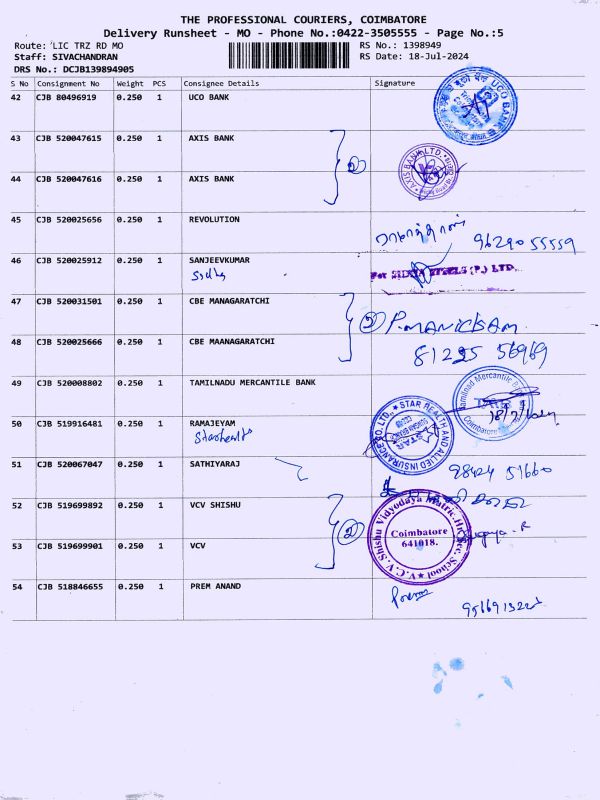 THE PROFESSIONAL COURIERS, COIMBATORE
Delivery Runsheet - MO - Phone No.:0422-3505555 - Page No.:5
Route: LIC TRZ RD MO
RS No.: 1398949
Staff: SIVACHANDRAN
RS Date: 18-Jul-2024
DRS No.: DCJB139894905
S No Consignment No Weight PCS Consignee Details Signature
42 CJB 80496919 0.250 1 UCO BANK
UCO BANK
43 CJB 520047615 0.250 1 AXIS BANK
2
AXIS BANK LTD.
44 CJB 520047616 0.250 1 AXIS BANK
45 CJB 520025656 0.250 1 REVOLUTION
9629055559
46 CJB 520025912 0.250 1 SANJEEVKUMAR
For STEELS (P.) LTD.
47 CJB 520031501 0.250 1 CBE MANAGARATCHI
2 P.MANICKAM
48 CJB 520025666 0.250 1 CBE MAANAGARATCHI
81225 56969
49 CJB 520008802 0.250 1 TAMILNADU MERCANTILE BANK
Tamilnad Mercantile
Coimbatore
50 CJB 519916481 0.250 1 RAMAJEYAM
Starhealth
STAR HEALTH AND ALLIED INSURANCE CO. LTD.,
STAR
51 CJB 520067047 0.250 1 SATHIYARAJ
98424 51660
52 CJB 519699892 0.250 1 VCV SHISHU
2
V.C.V. Shishu Vidyodaya Matric.Hr.Sec. School
Coimbatore
641018.
53 CJB 519699901 0.250 1 VCV
54 CJB 518846655 0.250 1 PREM ANAND